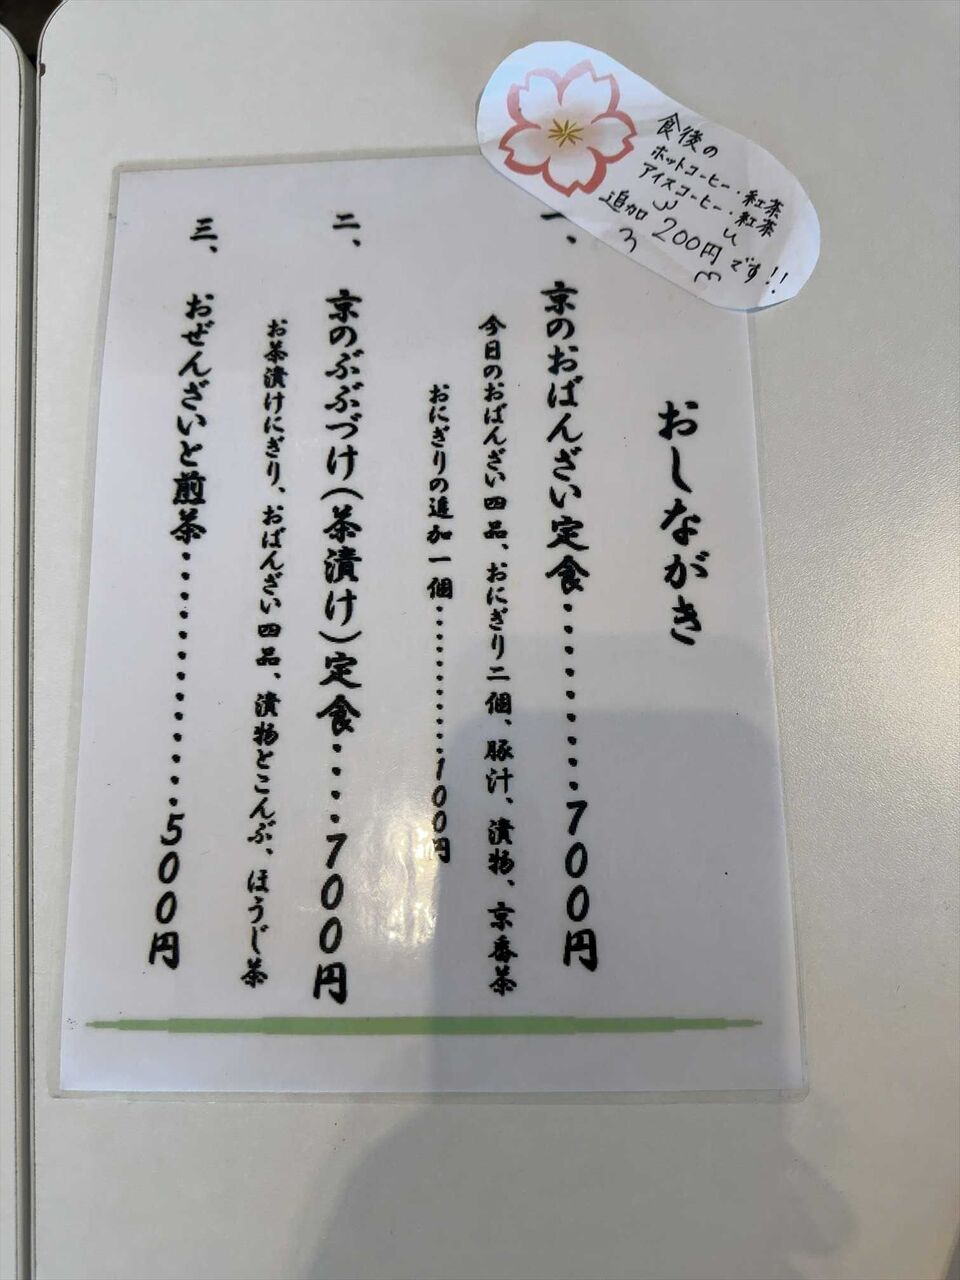 食後の
ホットコーヒー・紅茶
アイスコーヒー・紅茶
追加200円です!!
おしながき
一、京のおばんざい定食・・・・・・・・・700円
今日のおばんざい四品、おにぎり二個、豚汁、漬物、京番茶
おにぎりの追加一個・・・・・・・・・・・100円
二、京のぶぶづけ(茶漬け)定食・・・・700円
お茶漬けにぎり、おばんざい四品、漬物とこんぶ、ほうじ茶
三、おぜんざいと煎茶・・・・・・・・・・・・・500円